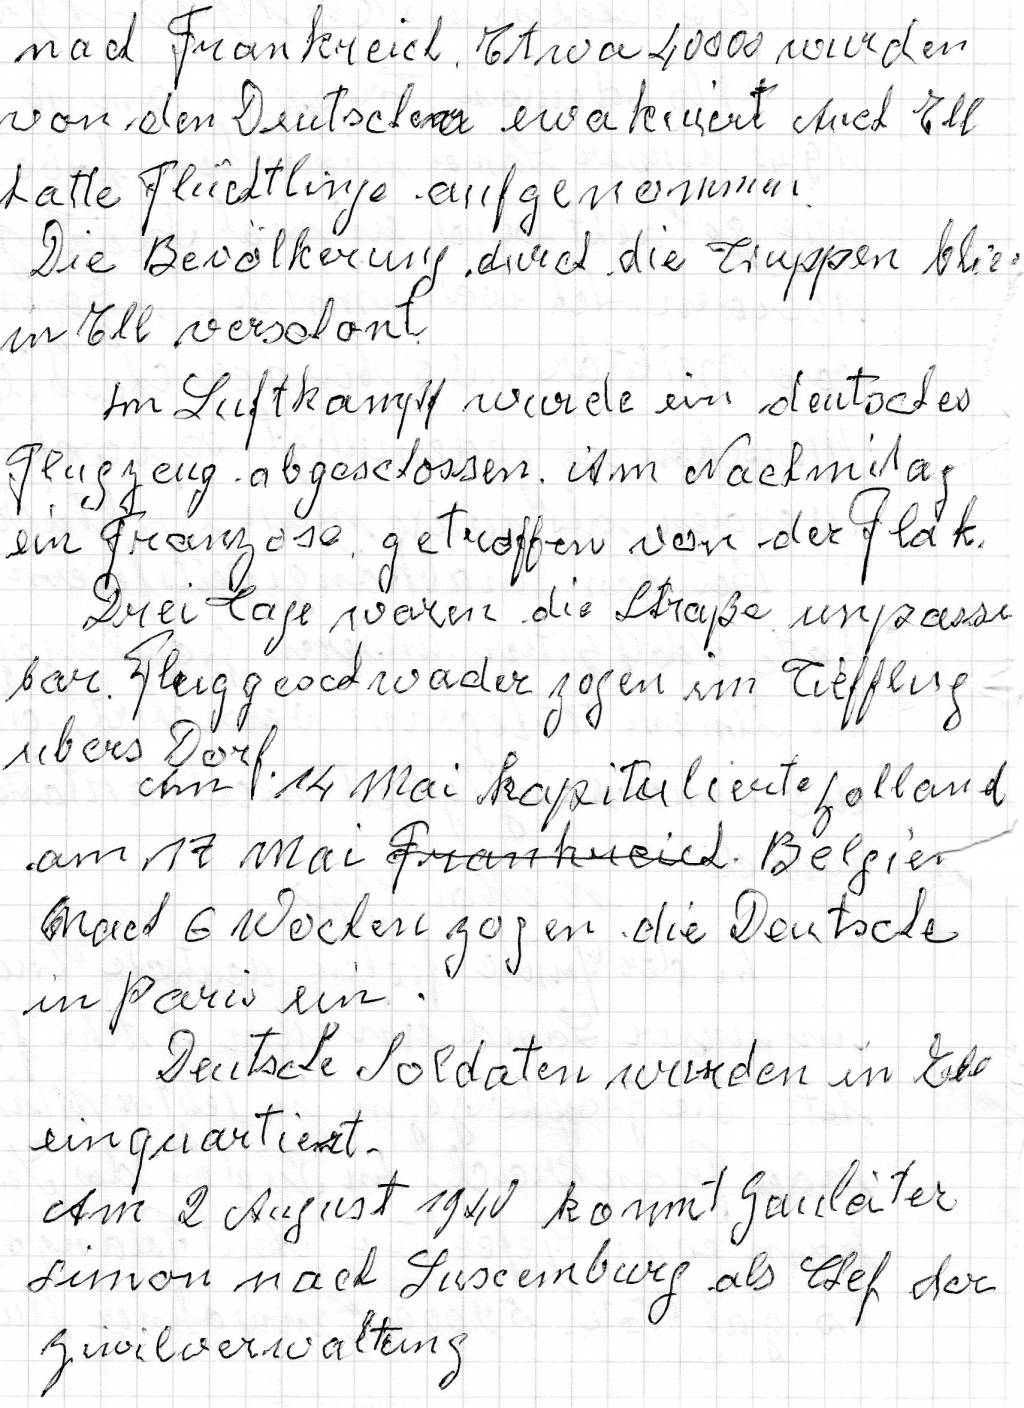 nach Frankreich. Etwa 40000 wurden
von den Deutschen evakuiert Auch Ell
hatte Flüchtlinge aufgenommen.
Die Bevölkerung durch die Truppen blie
in Ell verschont.
Im Luftkampf wurde ein deutsches
Flugzeug abgeschossen. Am Nachmitag
ein Franzose, getroffen von der Flak.
Drei Tage waren die Straße unpassi
bar. Fluggeschwader zogen im Tiefflug
übers Dorf.
Am 14 Mai kapitulierte Holland
am 17 Mai Frankreich. Belgien
Nach 6 Wochen zogen die Deutsche
in Paris ein.
Deutsche Soldaten wurden in Ell
einquartiert.
Am 2 August 1940 kommt Gauleiter
Simon nach Luxemburg als Chef der
Zivilverwaltung